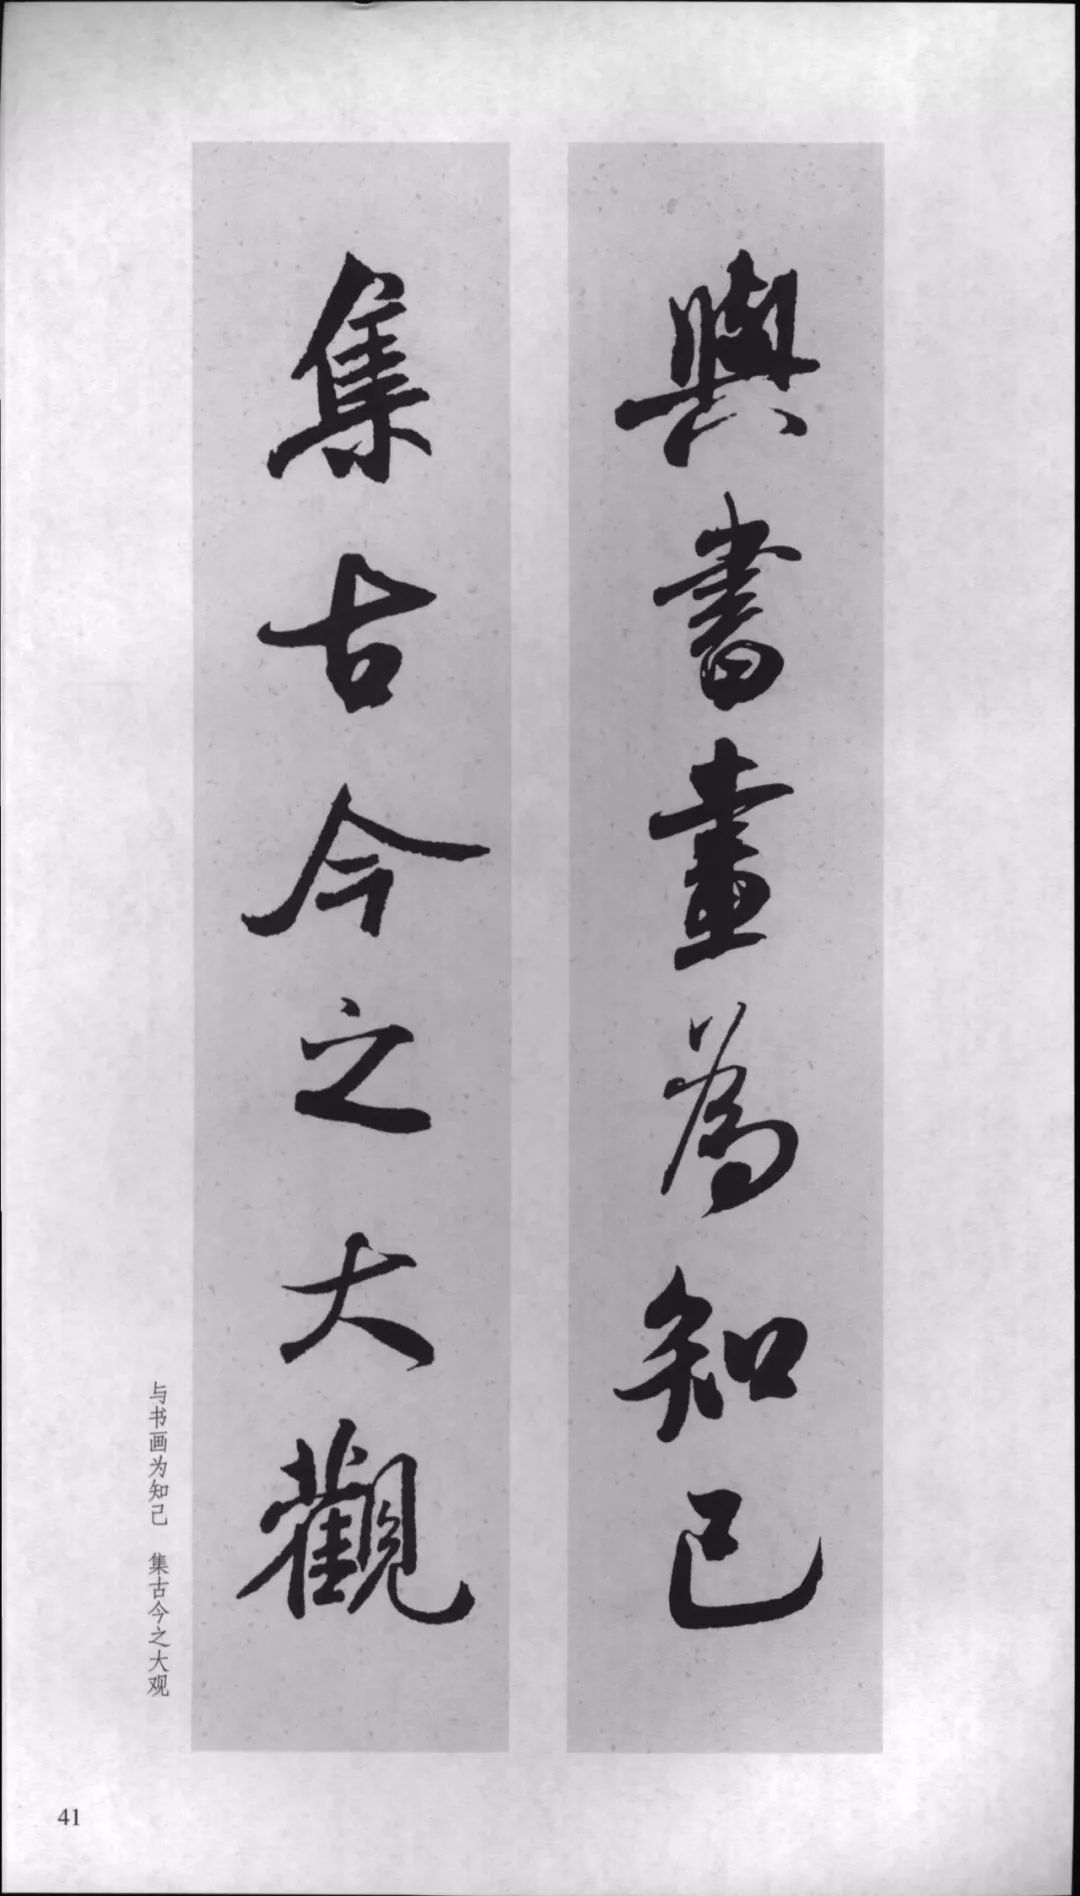 與書畫為知己
集古今之大觀
与书画为知己 集古今之大观
41